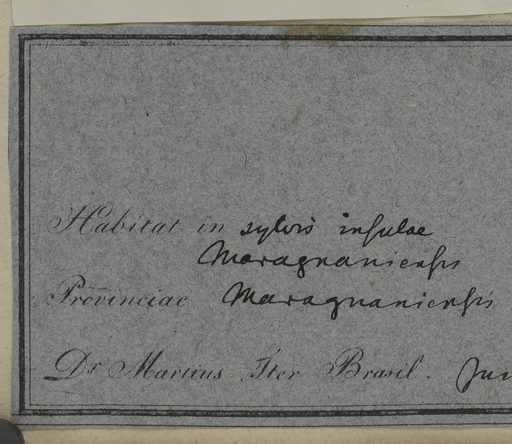 Habitat in sylvis insulae
Maragnaniensis
Provinciae Maragnaniensis
Dr Martius Iter Brasil. Jun